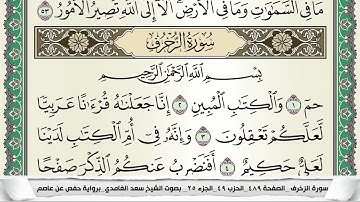 مَا فِي السَّمَاوَاتِ وَمَا فِي الْأَرْضِ أَلَا إِلَى اللَّهِ تَصِيرُ الْأُمُورُ ٥٣
سُورَةُ الزُّخْرُفِ
بِسْمِ اللَّهِ الرَّحْمَٰنِ الرَّحِيمِ
حم ١ وَالْكِتَابِ الْمُبِينِ ٢ إِنَّا جَعَلْنَاهُ قُرْءَانًا عَرَبِيًّا
لَّعَلَّكُمْ تَعْقِلُونَ ٣ وَإِنَّهُ فِي أُمِّ الْكِتَابِ لَدَيْنَا
لَعَلِيٌّ حَكِيمٌ ٤ أَفَنَضْرِبُ عَنكُمُ الذِّكْرَ صَفْحًا
سورة الزخرف - الصفحة ٤٨٩ - الحزب ٤٩ - الجزء ٢٥ - بصوت الشيخ سعد الغامدي - برواية حفص عن عاصم